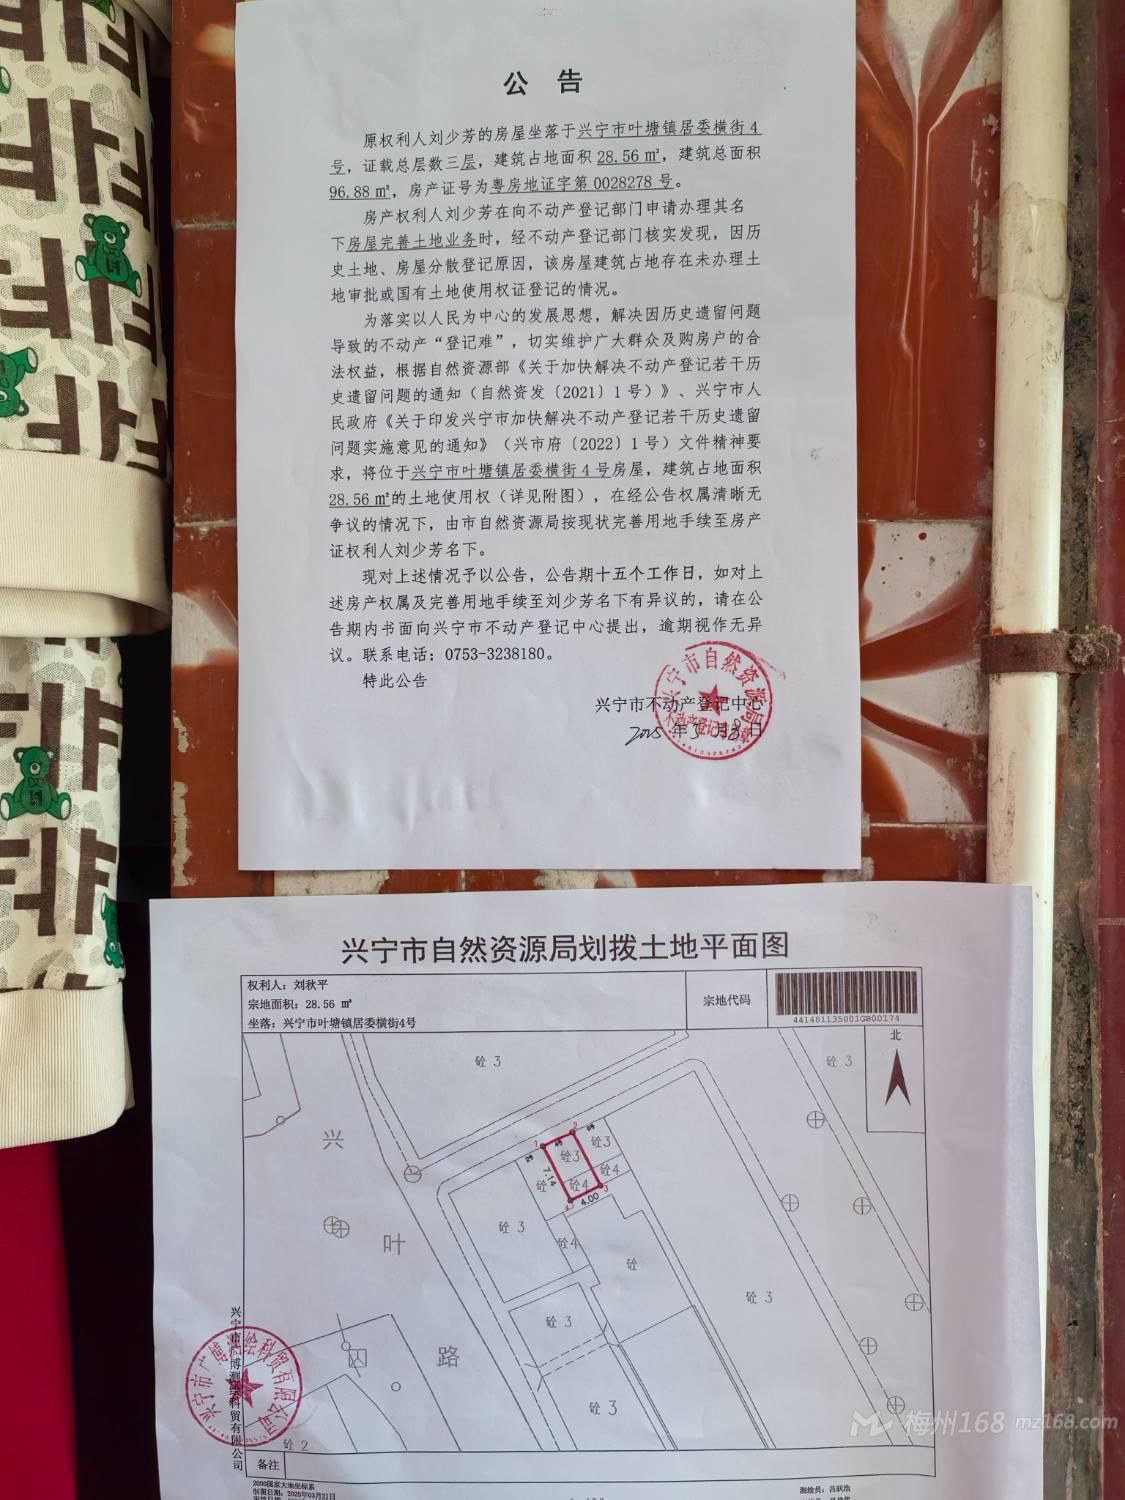 公 告
原权利人刘少芳的房屋坐落于兴宁市叶塘镇居委横街4
号，证载总层数三层，建筑占地面积28.56㎡，建筑总面积
96.88㎡，房产证号为粤房地证字第0028278号。
房产权利人刘少芳在向不动产登记部门申请办理其名
下房屋完善土地业务时，经不动产登记部门核实发现，因历
史土地、房屋分散登记原因，该房屋建筑占地存在未办理土
地审批或国有土地使用权证登记的情况。
为落实以人民为中心的发展思想，解决因历史遗留问题
导致的不动产“登记难”，切实维护广大群众及购房户的合
法权益，根据自然资源部《关于加快解决不动产登记若干历
史遗留问题的通知（自然资发〔2021〕1号）》、兴宁市人
民政府《关于印发兴宁市加快解决不动产登记若干历史遗留
问题实施意见的通知》（兴市府〔2022〕1号）文件精神要
求，将位于兴宁市叶塘镇居委横街4号房屋，建筑占地面积
28.56㎡的土地使用权（详见附图），在经公告权属清晰无
争议的情况下，由市自然资源局按现状完善用地手续至房产
证权利人刘少芳名下。
现对上述情况予以公告，公告期十五个工作日，如对上
述房产权属及完善用地手续至刘少芳名下有异议的，请在公
告期内书面向兴宁市不动产登记中心提出，逾期视作无异
议。联系电话：0753-3238180。
特此公告
兴宁市不动产登记中心
2025年3月 日
兴宁市自然资源局
兴宁市自然资源局划拨土地平面图
权利人：刘秋平
宗地面积：28.56 ㎡
坐落：兴宁市叶塘镇居委横街4号
宗地代码
441481135001GB00174
北
砼 3
砼 3
兴
1
2
砼3
砼3
砼4
7.14
砼
砼4
3
4.00
4
砼 3
砼4
叶
砼
砼 3
砼 3
路
砼 3
砼 2
兴宁市产博测绘科贸有限公司
兴宁市产博测绘科贸有限公司
备注
2000国家大地坐标系
制图日期：2025年03月21日
测绘员：吕跃浩
梅州168 mz168.com